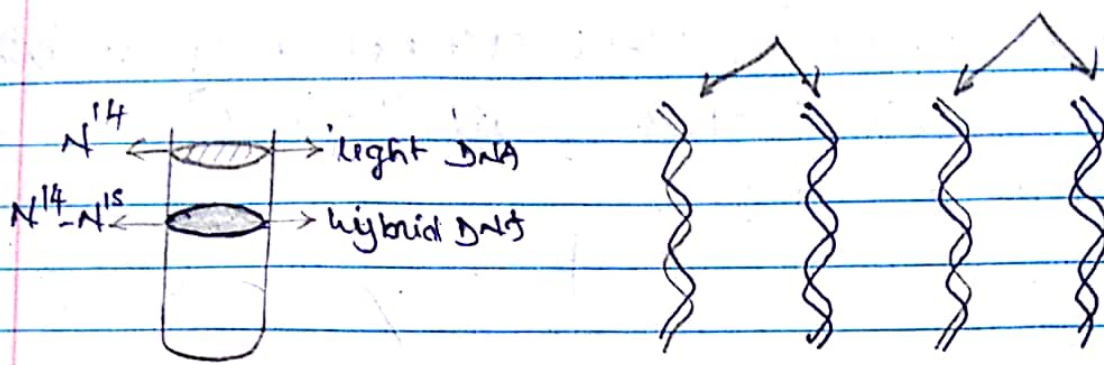 N¹⁴ light DNA
N¹⁴-N¹⁵ hybrid DNA